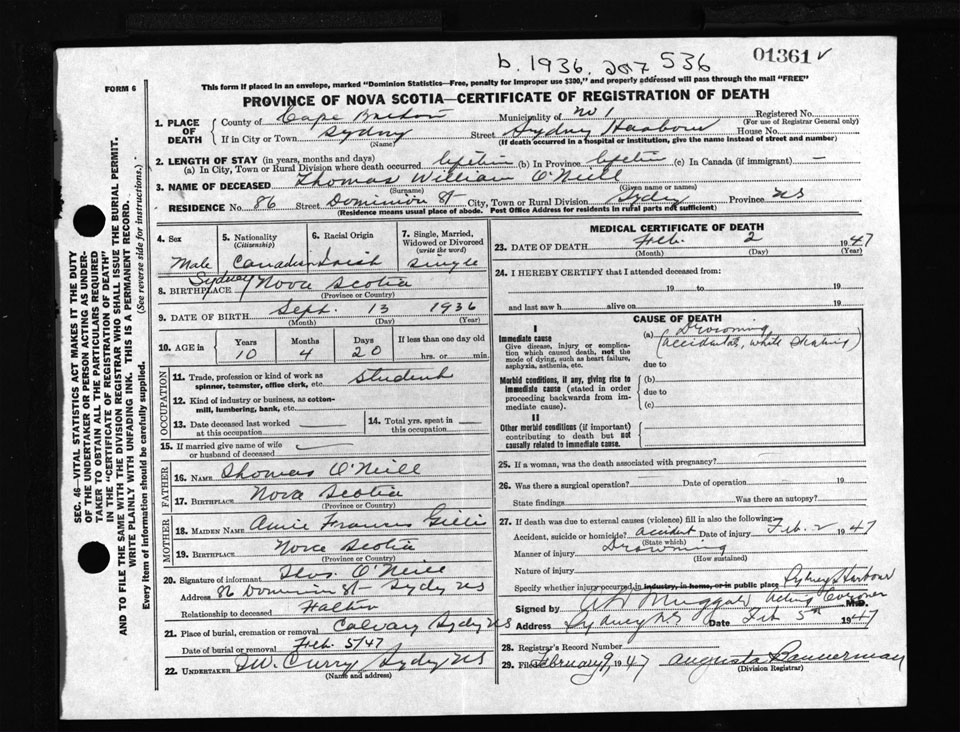 b. 1936. 207 536
01361 ✓
FORM 6
This form if placed in an envelope, marked "Dominion Statistics—Free, penalty for improper use $300," and properly addressed will pass through the mail "FREE"
PROVINCE OF NOVA SCOTIA—CERTIFICATE OF REGISTRATION OF DEATH
SEC. 46—VITAL STATISTICS ACT MAKES IT THE DUTY
OF THE UNDERTAKER OR PERSON ACTING AS UNDER-
TAKER TO OBTAIN ALL THE PARTICULARS REQUIRED
IN THE "CERTIFICATE OF REGISTRATION OF DEATH"
AND TO FILE THE SAME WITH THE DIVISION REGISTRAR WHO SHALL ISSUE THE BURIAL PERMIT.
WRITE PLAINLY WITH UNFADING INK. THIS IS A PERMANENT RECORD.
Every item of information should be carefully supplied. (See reverse side for instructions.)
1. PLACE OF DEATH
County of Cape Breton Municipality of No 1 Registered No.
(For use of Registrar General only)
If in City or Town Sydney Street Sydney Harbour House No.
(Name) (If death occurred in a hospital or institution, give the name instead of street and number)
2. LENGTH OF STAY (in years, months and days)
(a) In City, Town or Rural Division where death occurred Lifetime (b) In Province Lifetime (c) In Canada (if immigrant) —
3. NAME OF DECEASED Thomas William O'Neill
(Surname) (Given name or names)
RESIDENCE No. 86 Street Dominion St City, Town or Rural Division Sydney Province NS
(Residence means usual place of abode. Post Office Address for residents in rural parts not sufficient)
4. Sex
Male
5. Nationality
(Citizenship)
Canadian
6. Racial Origin
Irish
7. Single, Married, Widowed or Divorced
(write the word)
Single
8. BIRTHPLACE Sydney Nova Scotia
(Province or Country)
9. DATE OF BIRTH Sept. 13 1936
(Month) (Day) (Year)
10. AGE in Years Months Days If less than one day old
10 4 20 hrs. or min.
OCCUPATION
11. Trade, profession or kind of work as
spinner, teamster, office clerk, etc. Student
12. Kind of industry or business, as cotton-
mill, lumbering, bank, etc.
13. Date deceased last worked
at this occupation —
14. Total yrs. spent in
this occupation —
15. If married give name of wife
or husband of deceased
FATHER
16. NAME Thomas O'Neill
17. BIRTHPLACE Nova Scotia
(Province or Country)
MOTHER
18. MAIDEN NAME Annie Frances Gillis
19. BIRTHPLACE Nova Scotia
(Province or Country)
20. Signature of informant Thos. O'Neill
Address 86 Dominion St Sydney NS
Relationship to deceased Father
21. Place of burial, cremation or removal Calvary Sydney NS
Date of burial or removal Feb. 5/47
22. UNDERTAKER W. Curry Sydney NS
(Name and address)
MEDICAL CERTIFICATE OF DEATH
23. DATE OF DEATH Feb. 2 1947
(Month) (Day) (Year)
24. I HEREBY CERTIFY that I attended deceased from:
19 to 19
and last saw h alive on 19
CAUSE OF DEATH
I
Immediate cause
Give disease, injury or complica-
tion which caused death, not the
mode of dying, such as heart failure,
asphyxia, asthenia, etc.
(a) Drowning
(accidental, while skating)
due to
Morbid conditions, if any, giving rise to
immediate cause (stated in order
proceeding backwards from im-
mediate cause).
(b)
due to
(c)
II
Other morbid conditions (if important)
contributing to death but not
causally related to immediate cause.
25. If a woman, was the death associated with pregnancy?
26. Was there a surgical operation? Date of operation 19
State findings Was there an autopsy?
27. If death was due to external causes (violence) fill in also the following:
Accident, suicide or homicide? accident Date of injury Feb. 2 1947
(State which)
Manner of injury Drowning
(How sustained)
Nature of injury
Specify whether injury occurred in industry, in home, or in public place Sydney Harbour
Signed by Acting Coroner M.D.
Address Sydney NS Date Feb 5th 1947
28. Registrar's Record Number
29. Filed February 9, 1947 Augusta Bannerman
(Division Registrar)